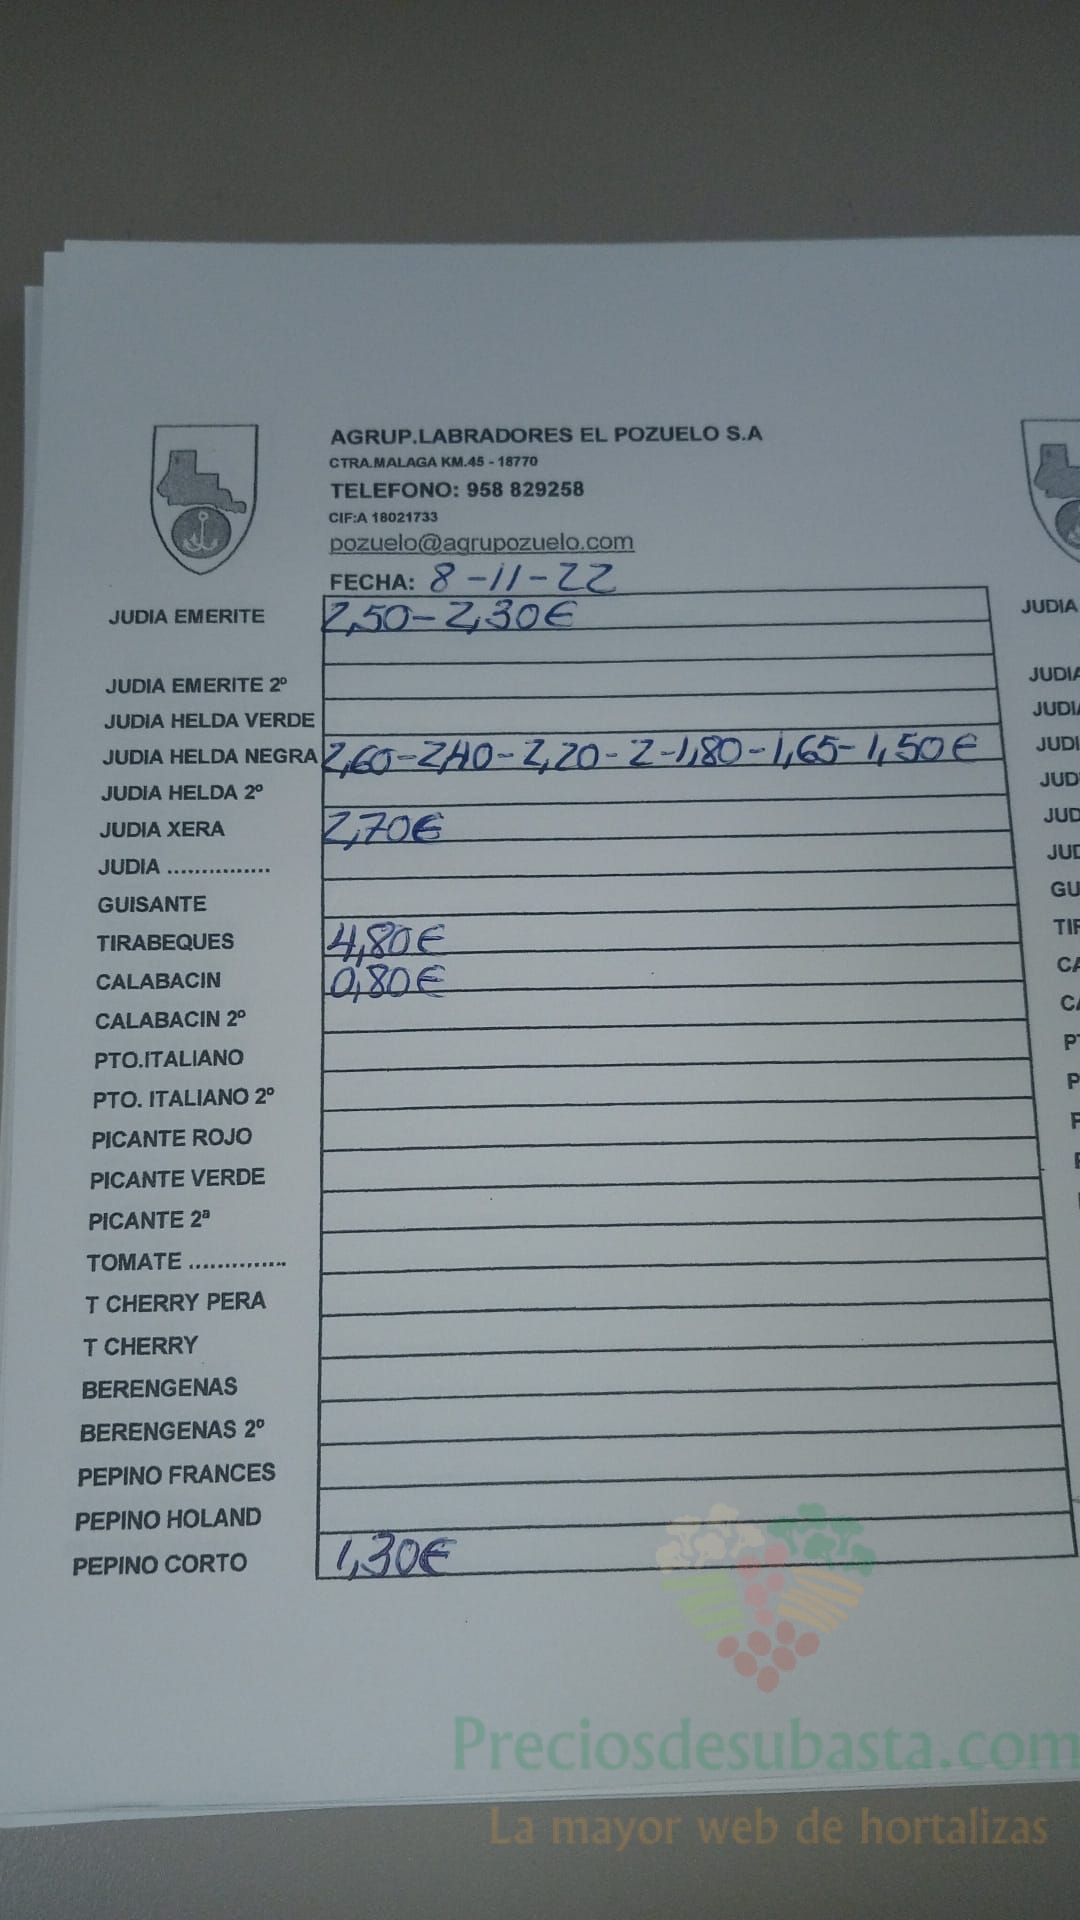 AGRUP.LABRADORES EL POZUELO S.A
CTRA.MALAGA KM.45 - 18770
TELEFONO: 958 829258
CIF:A 18021733
pozuelo@agrupozuelo.com
FECHA: 8-11-22
JUDIA EMERITE 2,50-2,30€
JUDIA EMERITE 2º
JUDIA HELDA VERDE
JUDIA HELDA NEGRA 2,60-2,40-2,20-2-1,80-1,65-1,50€
JUDIA HELDA 2º
JUDIA XERA 2,70€
JUDIA ...............
GUISANTE
TIRABEQUES 4,80€
CALABACIN 0,80€
CALABACIN 2º
PTO.ITALIANO
PTO. ITALIANO 2º
PICANTE ROJO
PICANTE VERDE
PICANTE 2ª
TOMATE ..............
T CHERRY PERA
T CHERRY
BERENGENAS
BERENGENAS 2º
PEPINO FRANCES
PEPINO HOLAND
PEPINO CORTO 1,30€
JUDIA
JUDIA
JUDI
JUDI
JUD
JUD
JUD
GU
TIF
CA
CA
PT
P
Preciosdesubasta.com
La mayor web de hortalizas